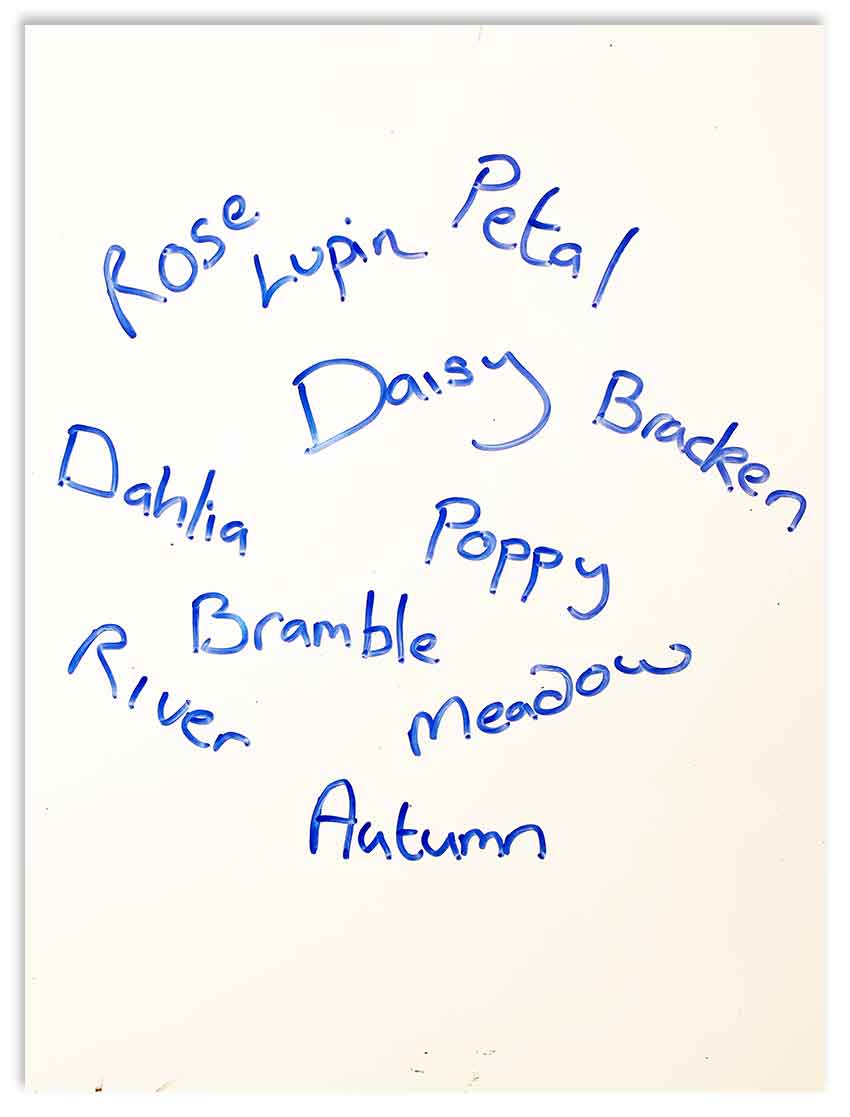 Petal
Rose
Lupin
Daisy
Bracken
Dahlia
Poppy
Bramble
River
Meadow
Autumn